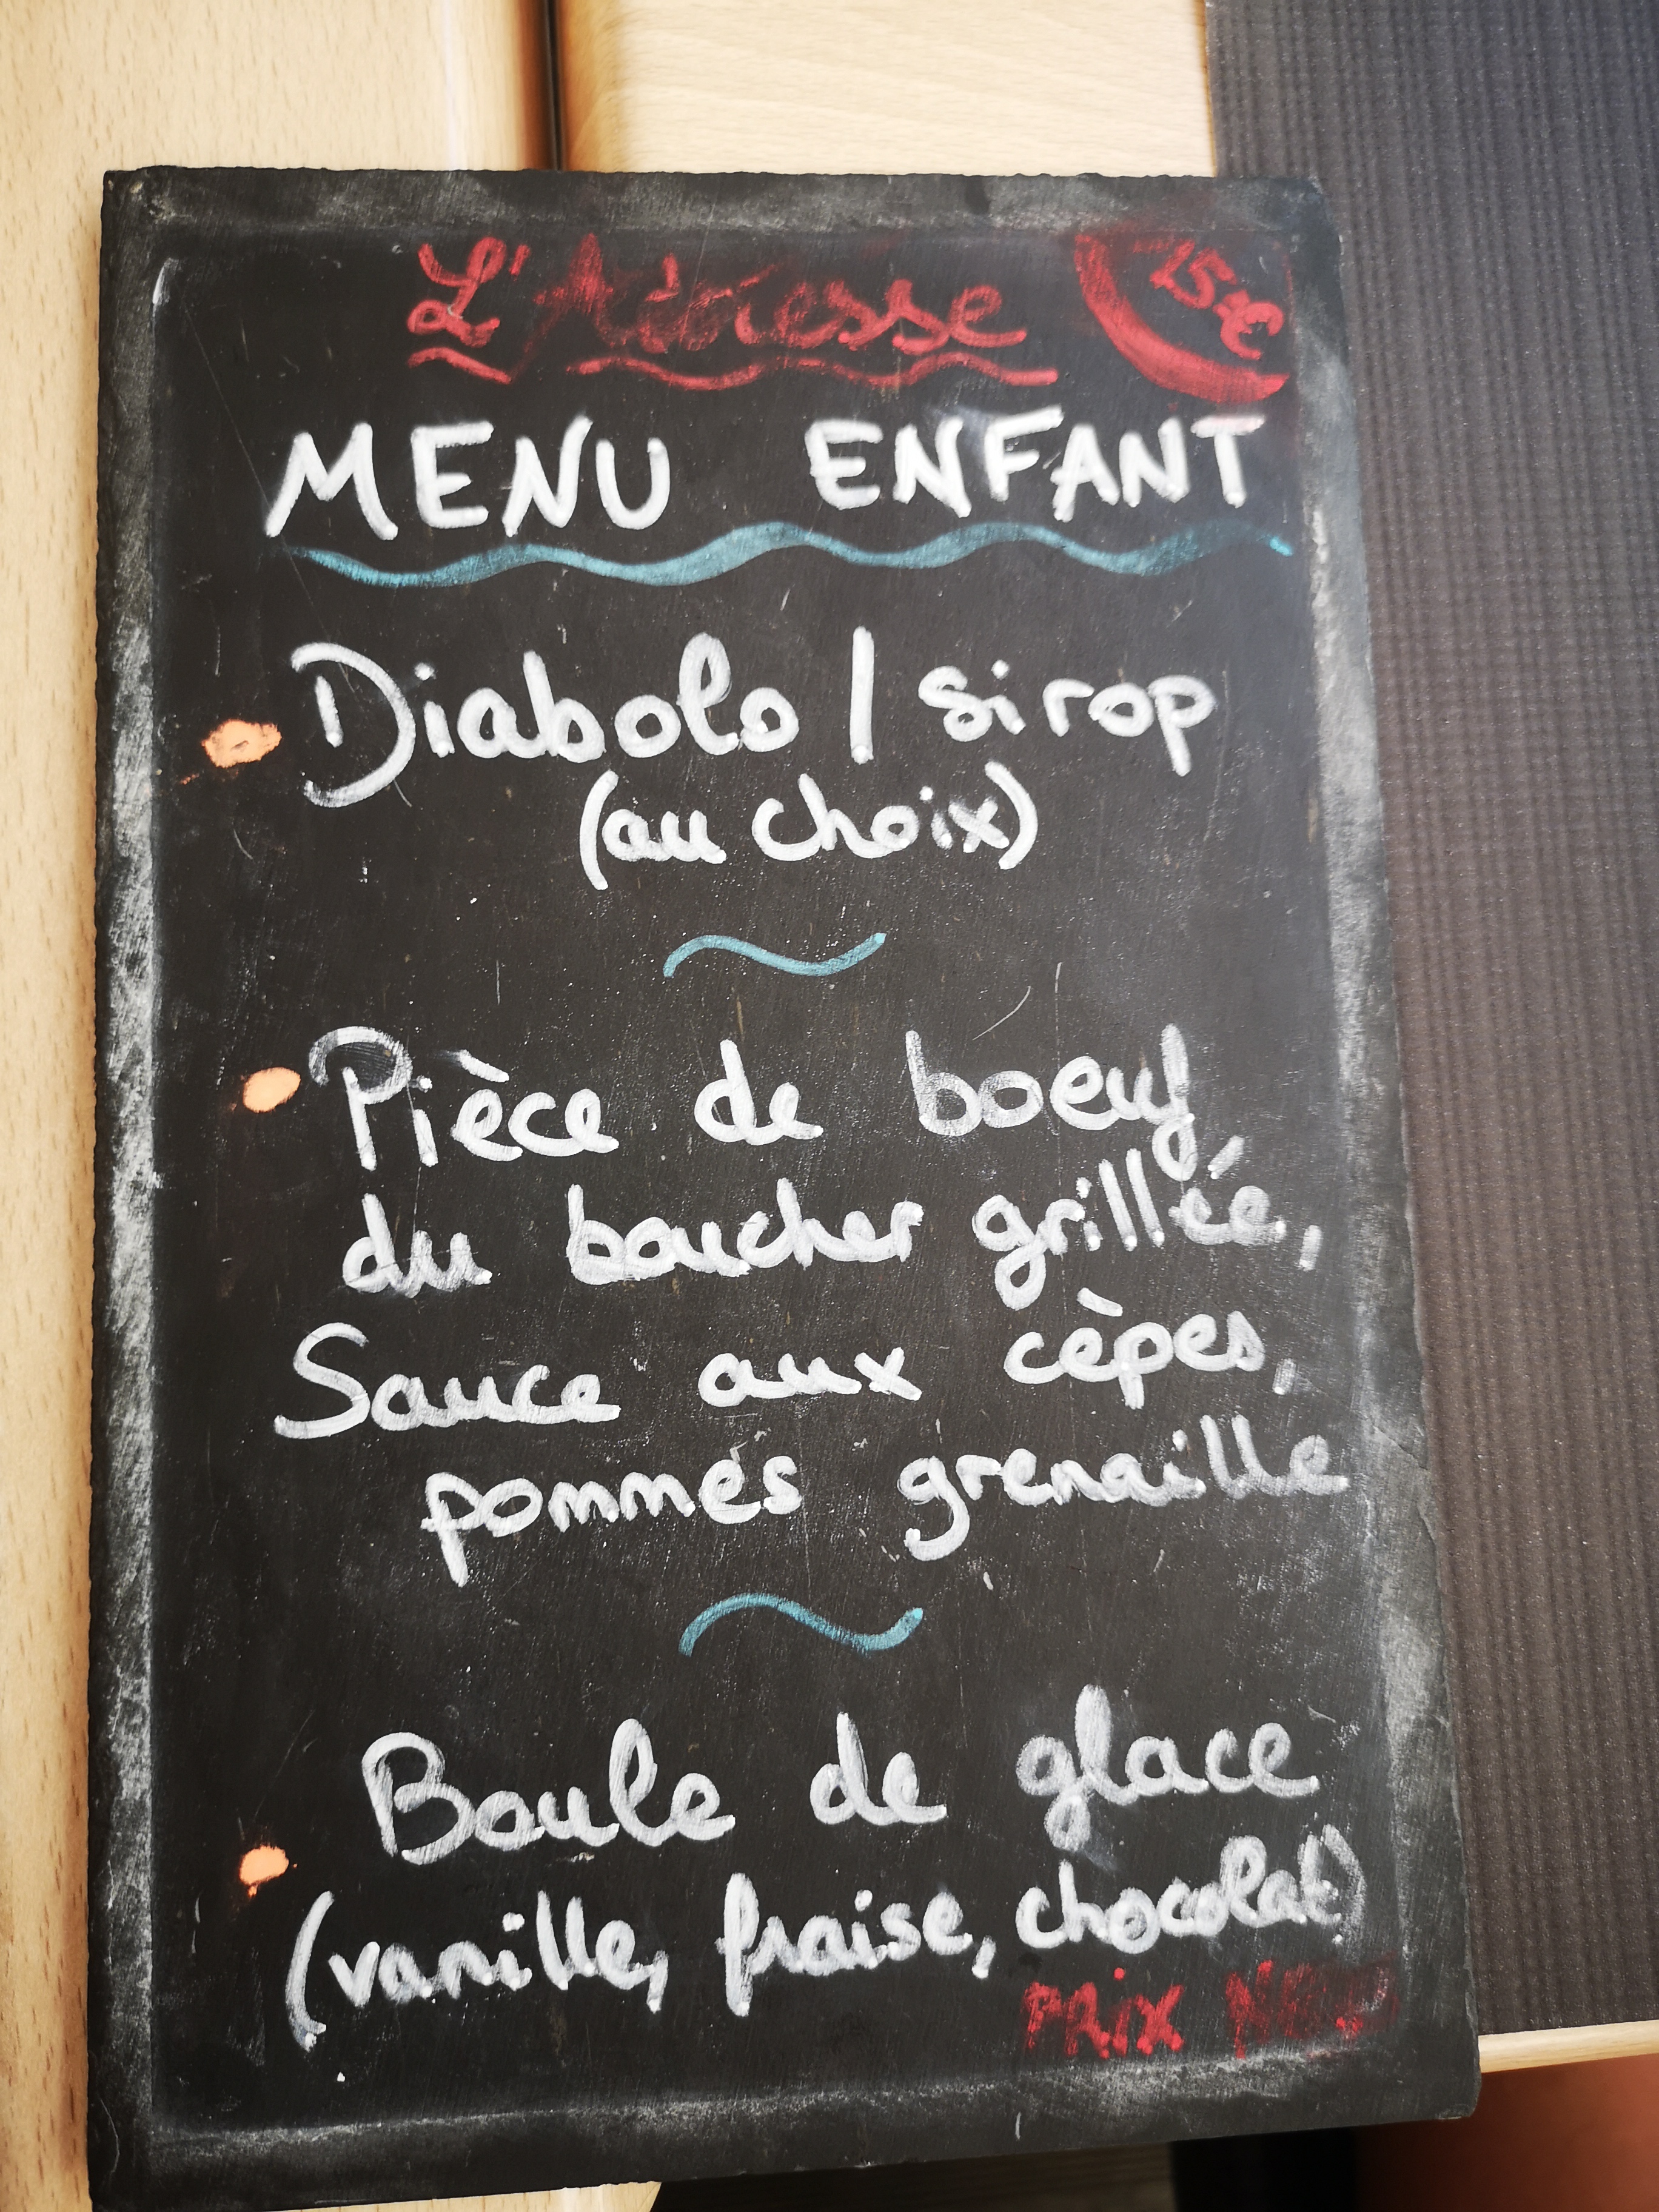 L'Adresse
15€
MENU ENFANT
Diabolo / sirop
(au choix)
Pièce de boeuf
du boucher grillée,
Sauce aux cèpes,
pommes grenaille
Boule de glace
(vanille, fraise, chocolat)
PRIX